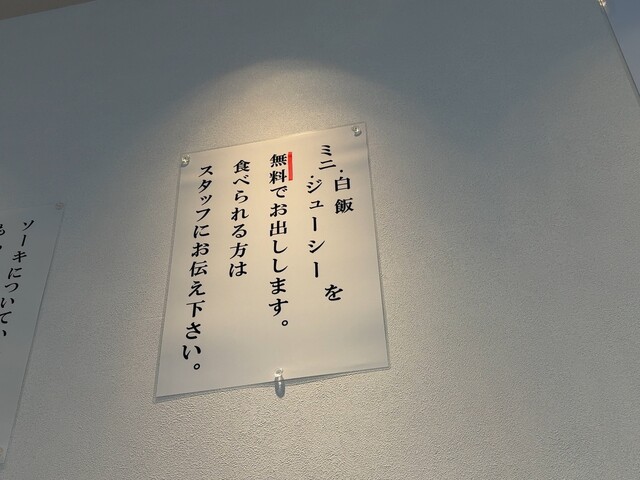 ミニ・白飯
・ジューシーを
無料でお出しします。
食べられる方は
スタッフにお伝え下さい。
ソーキについてい